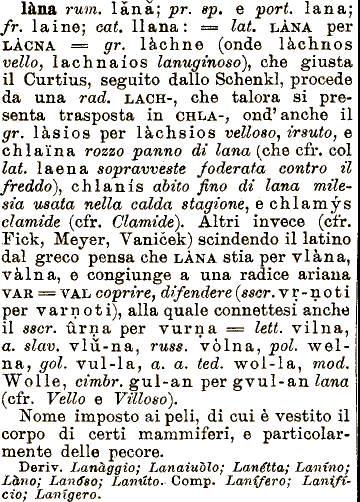 làna rum. lănă; pr. sp. e port. lana;
fr. laine; cat. llana: = lat. LÀNA per
LÀCNA = gr. làchne (onde làchnos
vello, lachnaíos lanuginoso), che giusta
il Curtius, seguito dallo Schenkl, procede
da una rad. LACH-, che talora si pre-
senta trasposta in CHLA-, ond'anche il
gr. làsios per làchsios velloso, irsuto, e
chlaïna rozzo panno di lana (che cfr. col
lat. laena sopravveste foderata contro il
freddo), chlanís abito fino di lana mile-
sia usata nella calda stagione, e chlamýs
clamide (cfr. Clamide). Altri invece (cfr.
Fick, Meyer, Vaniček) scindendo il latino
dal greco pensa che LÀNA stia per vlàna,
vàlna, e congiunge a una radice ariana
VAR = VAL coprire, difendere (sscr. vṛ-ṇoti
per varṇoti), alla quale connettesi anche
il sscr. ûrṇa per vurṇa = lett. vilna,
a. slav. vlŭ-na, russ. vòlna, pol. wel-
na, gol. vul-la, a. a. ted. wol-la, mod.
Wolle, cimbr. gul-an per gvul-an lana
(cfr. Vello e Villoso).
Nome imposto ai peli, di cui è vestito il
corpo di certi mammiferi, e particolar-
mente delle pecore.
Deriv. Lanàggio; Lanaiuòlo; Lanétta; Lanino;
Làno; Lanóso; Lanúto. Comp. Lanífero; Lanifi-
cio; Lanígero.